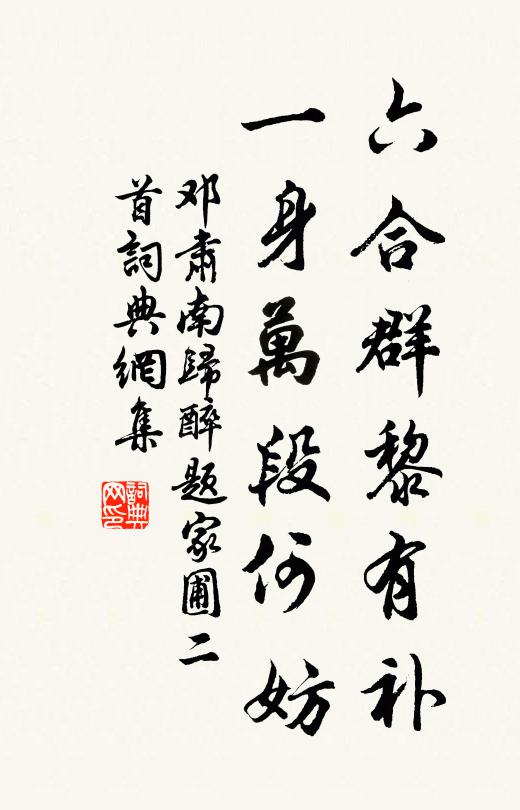 六合群黎有补
一身萬段何妨
邓肅南歸醉题家圃二
首詞典網集
詞典網印